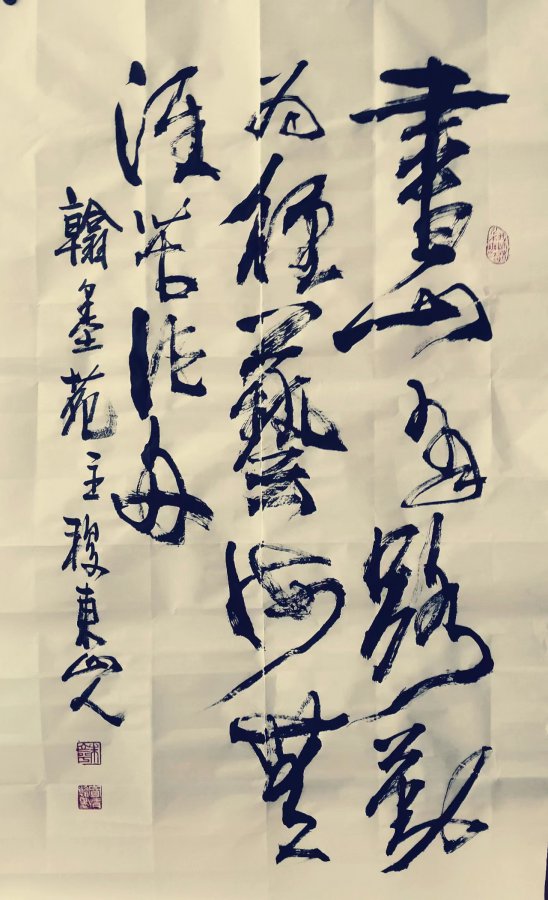 書山有路勤
為徑藝海無
涯苦作舟
翰墨苑主稷東山人